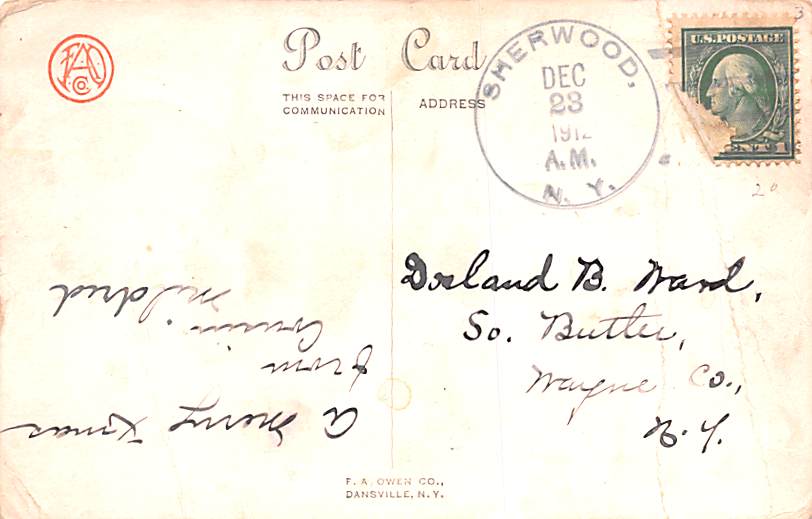 Post Card
THIS SPACE FOR
COMMUNICATION
ADDRESS
SHERWOOD,
DEC
23
1912
A.M.
N. Y.
U.S. POSTAGE
Dorland B. Ward,
So. Butler,
Wayne Co.,
N. Y.
A Merry Xmas
from
Cousin
Mildred
F. A. OWEN CO.,
DANSVILLE, N. Y.